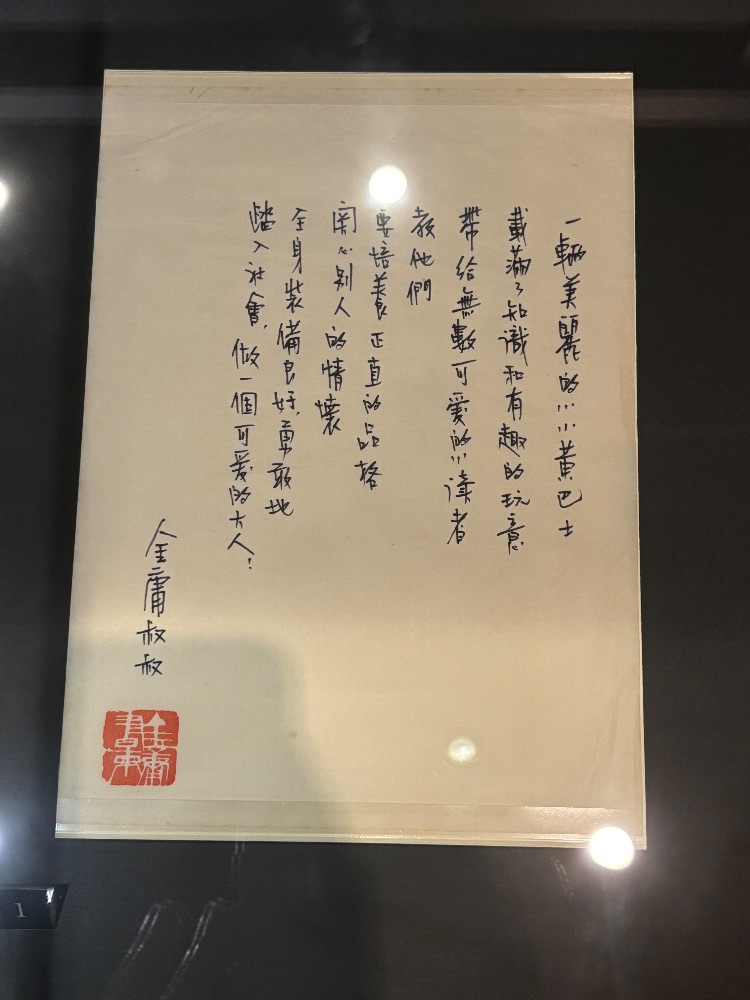 一輛美麗的小小黃巴士
載滿了知識和有趣的玩意
帶給無數可愛的小讀者
教他們
要培養正直的品格
關心別人的情懷
全身裝備良好,勇敢地
踏入社會,做一個可愛的大人!
金庸叔叔
金庸
書
1